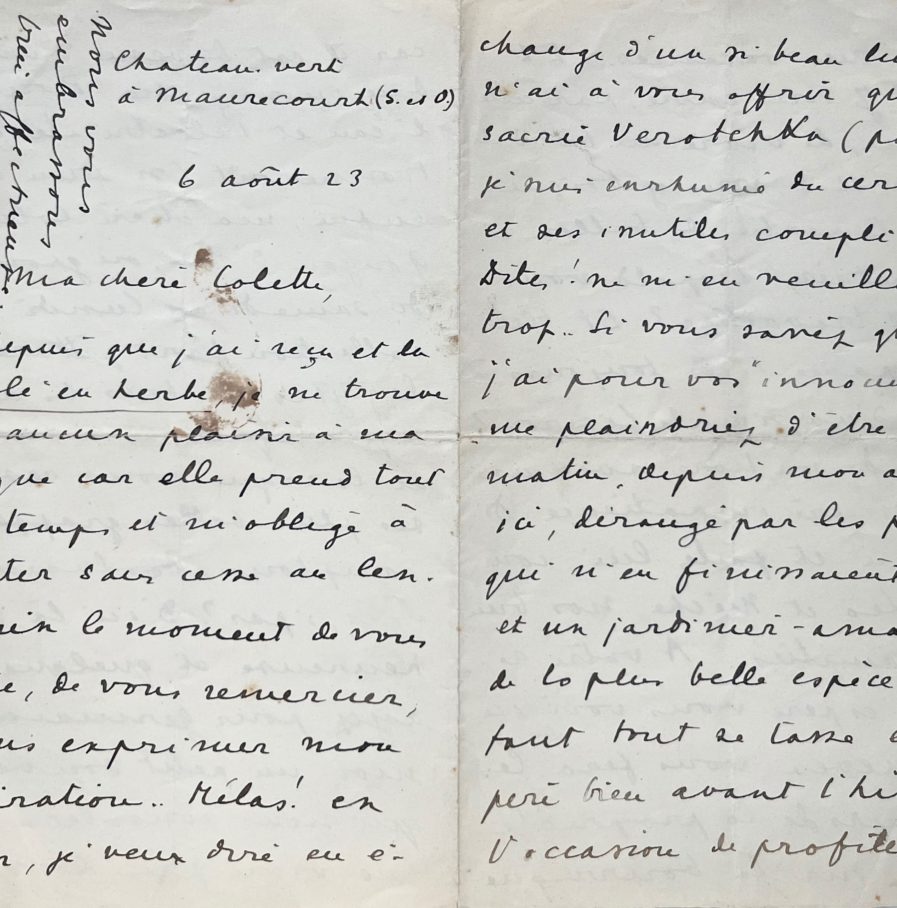 Chateau. vert
à Maurecourt (S. et O)
6 août 23
Ma cheré Colette,
epuis que j'ai reçu et lu
lé en herbe, je ne trouve
aucun plaisir à ma
que car elle prend tout
temps et m'oblige à
ter sans cesse au len.
ain le moment de vous
e, de vous remercier,
us exprimer mon
iration.. Hélas! en
r, je veux dire en é-
change d'un si beau li
n'ai à vous offrir qu
sacrié Verotchka (p
je suis enrhumé du cer
et ses inutiles compli
Dites! ne m'en veuill
trop.. Si vous saviez qu
j'ai pour vos "innoce
me plaindriez d'être
matin, depuis mon a
ici, dérangé par les p
qui n'en finissaient
et un jardinier-ama
de la plus belle espèce
tant tout se tasse e
père bien avant l'hi
l'occasion de profite
Nous vous
embrassons
bien affectueus